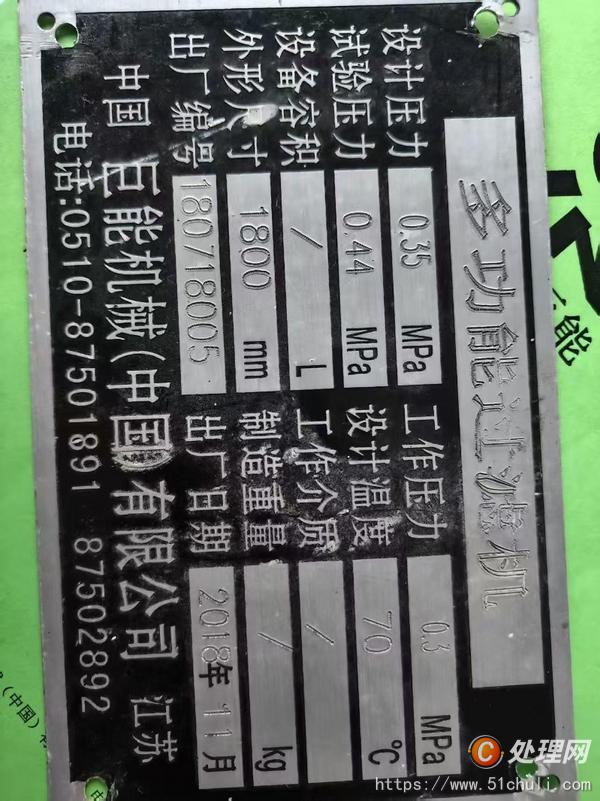 多功能过滤机
设计压力 0.35 MPa 工作压力 0.3 MPa
试验压力 0.44 MPa 设计温度 70 ℃
设备容积 / L 工作介质 /
外形尺寸 1800 mm 制造重量 / kg
出厂编号 180718005 出厂日期 2018年11月
中国 巨能机械(中国)有限公司 江苏
电话:0510-87501891 87502892
能
(中国)
C处理网
https://www.51chuli.com